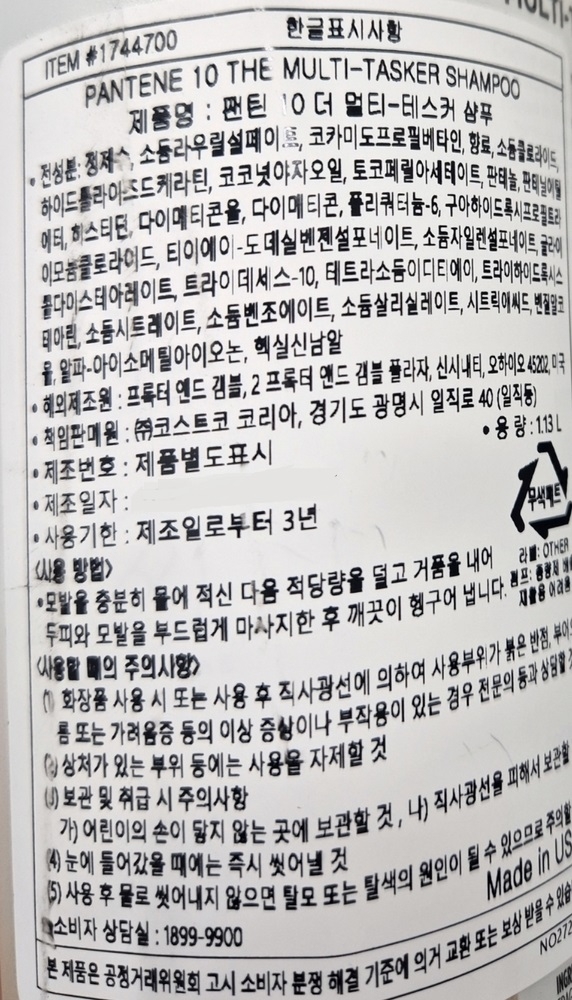 MULTI-
한글표시사항
ITEM #1744700
PANTENE 10 THE MULTI-TASKER SHAMPOO
제품명 : 팬틴 10 더 멀티-테스커 샴푸
• 전성분: 정제수, 소듐라우릴설페이트, 코카미도프로필베타인, 향료, 소듐클로라이드,
하이드롤라이즈드케라틴, 코코넛야자오일, 토코페릴아세테이트, 판테놀, 판테닐에틸
에터, 히스티딘, 다이메티콘올, 다이메티콘, 폴리쿼터늄-6, 구아하이드록시프로필트라
이모늄클로라이드, 티이에이-도데실벤젠설포네이트, 소듐자일렌설포네이트, 글라이
콜다이스테아레이트, 트라이데세스-10, 테트라소듐이디티에이, 트라이하이드록시스
테아린, 소듐시트레이트, 소듐벤조에이트, 소듐살리실레이트, 시트릭애씨드, 벤질알코
올, 알파-아이소메틸아이오논, 헥실신남알
• 해외제조원 : 프록터 앤드 갬블, 2 프록터 앤드 갬블 플라자, 신시내티, 오하이오 45202, 미국
• 책임판매원 : ㈜코스트코 코리아, 경기도 광명시 일직로 40 (일직동)
• 제조번호 : 제품별도표시
• 용 량 : 1.13 L
• 제조일자 :
• 사용기한 : 제조일로부터 3년
무색페트
라벨: OTHER
<사용 방법>
• 모발을 충분히 물에 적신 다음 적당량을 덜고 거품을 내어
두피와 모발을 부드럽게 마사지한 후 깨끗이 헹구어 냅니다.
재활용 어려움
<사용할 때의 주의사항>
(1) 화장품 사용 시 또는 사용 후 직사광선에 의하여 사용부위가 붉은 반점, 부어오
름 또는 가려움증 등의 이상 증상이나 부작용이 있는 경우 전문의 등과 상담할 것
(2) 상처가 있는 부위 등에는 사용을 자제할 것
(3) 보관 및 취급 시 주의사항
가) 어린이의 손이 닿지 않는 곳에 보관할 것, 나) 직사광선을 피해서 보관할
(4) 눈에 들어갔을 때에는 즉시 씻어낼 것
(5) 사용 후 물로 씻어내지 않으면 탈모 또는 탈색의 원인이 될 수 있으므로 주의할
Made in US
• 소비자 상담실 : 1899-9900
본 제품은 공정거래위원회 고시 소비자 분쟁 해결 기준에 의거 교환 또는 보상 받을 수 있습
NO272
INGR